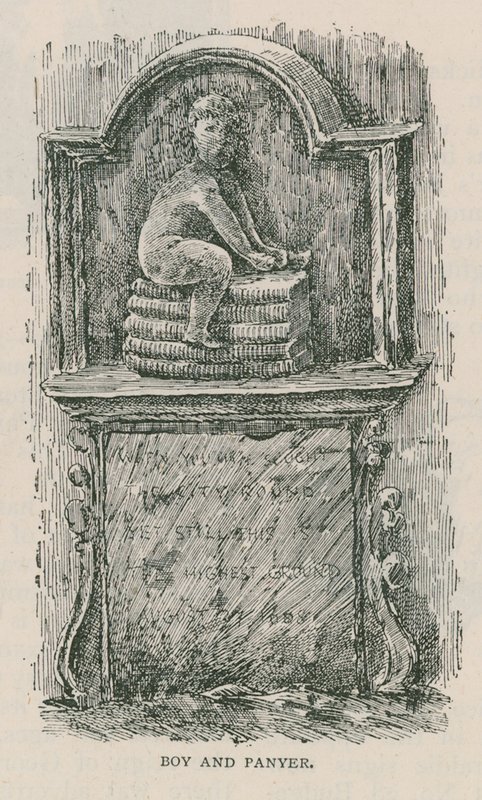 WHEN YOU HAVE SOUGHT
THE CITY ROUND
YET STILL THIS IS
THE HIGHEST GROUND
AUGUST 27 1688
BOY AND PANYER.